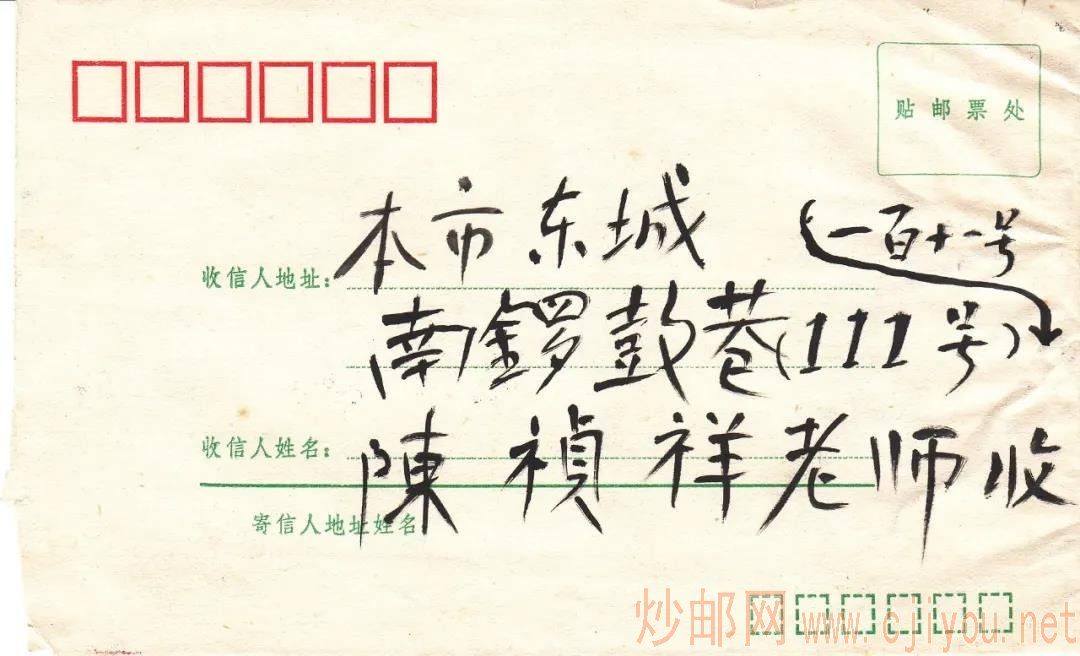 贴邮票处
本市东城
一百十一号
收信人地址:
南鑼鼓巷(111号)
收信人姓名:
陳禎祥老师收
寄信人地址姓名:
炒邮网 www.cjiyou.net